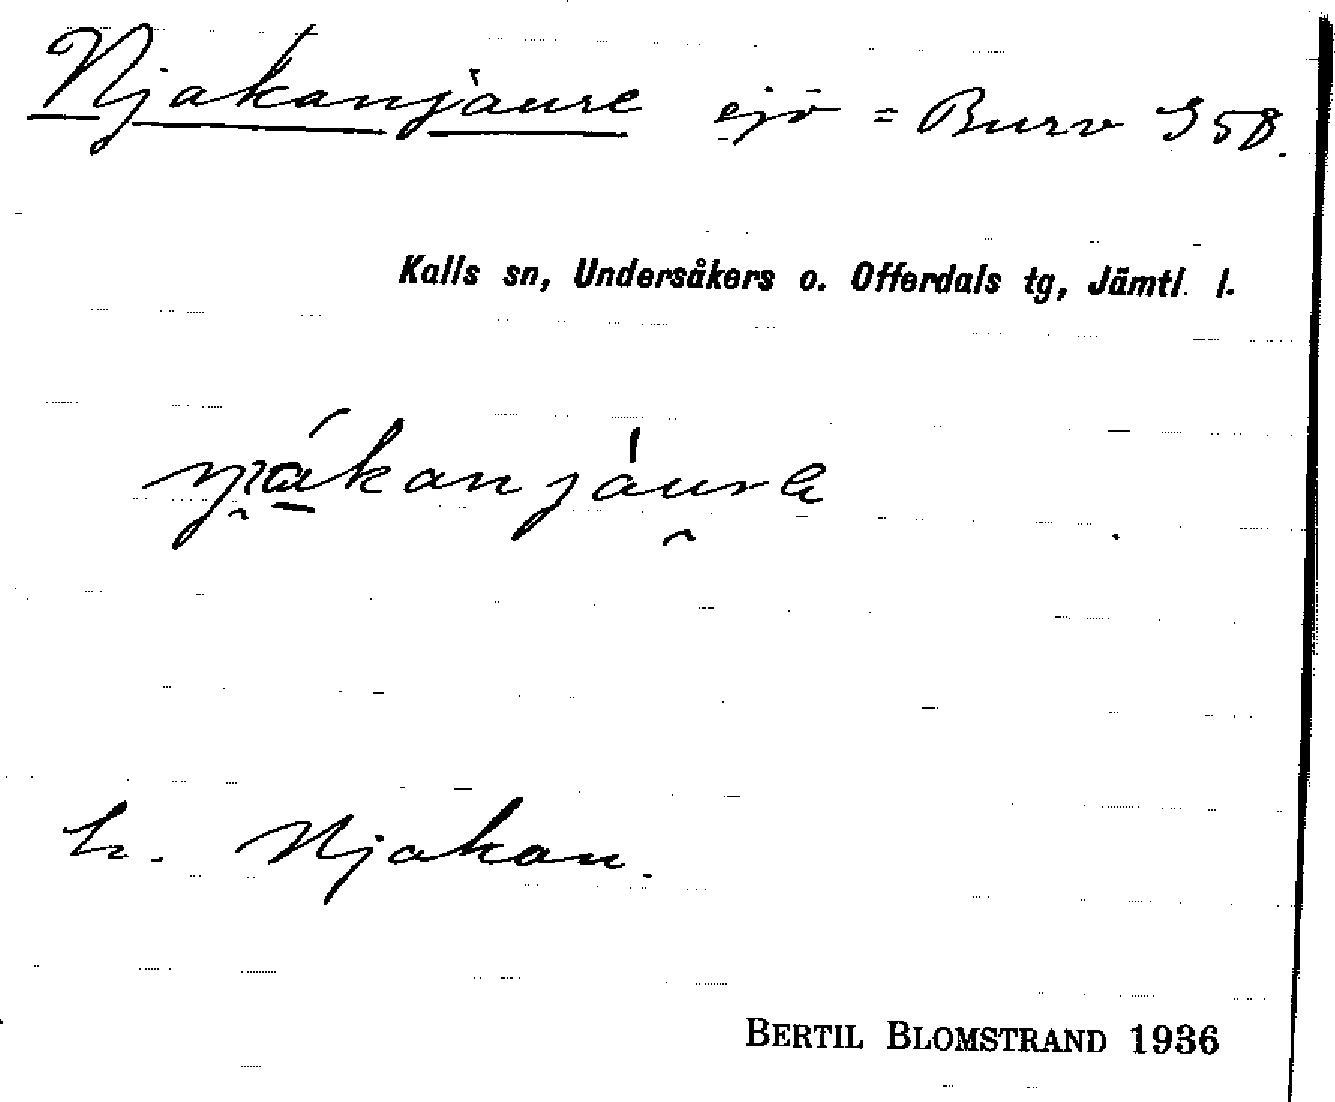 Njakanjaure sjö = Burv S 58.
Kalls sn, Undersåkers o. Offerdals tg, Jämtl. l.
Njakan.
BERTIL BLOMSTRAND 1936